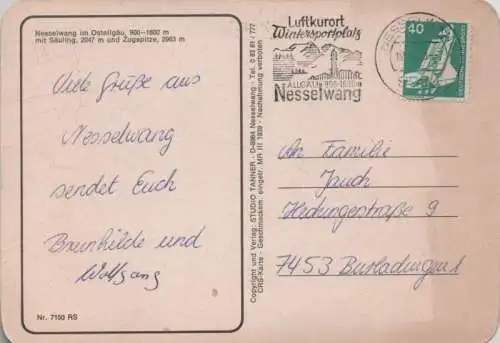 Nesselwang im Ostallgäu, 900—1600 m
mit Säuling, 2047 m und Zugspitze, 2963 m
Viele Grüße aus
Nesselwang
sendet Euch
Brunhilde und
Wolfgang
Nr. 7150 RS
Copyright und Verlag: STUDIO TANNER - D-8964 Nesselwang - Tel. 0 83 61 / 777
CRS-Karte - Geschmacksm. eingetr. MR III 1939 - Nachahmung verboten
Luftkurort
Wintersportplatz
ALLGÄU 900-1600m
Nesselwang
40
An Familie
Jauch
Hedingestraße 9
7453 Burladingen 1